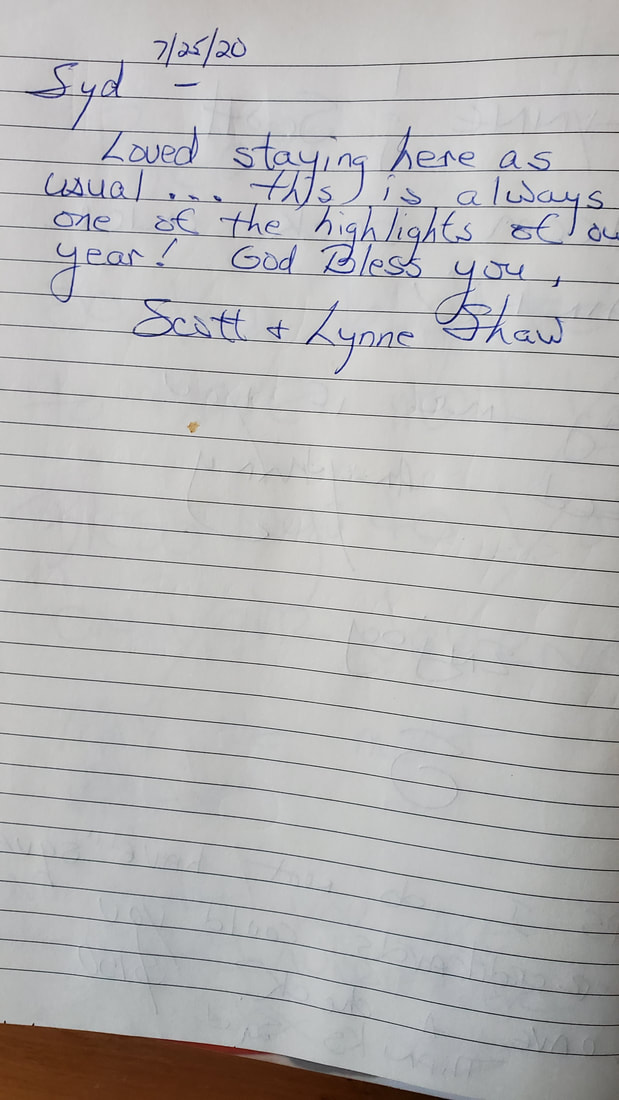 7/25/20
Syd –
Loved staying here as
usual ... this is always
one of the highlights of ou
year! God Bless you,
Scott + Lynne Shaw